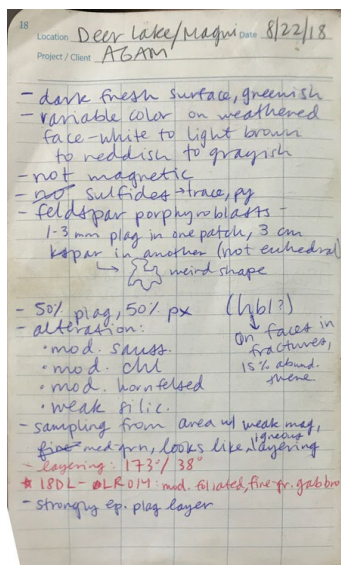 18
Location Deer Lake/Maqui Date 8/22/18
Project / Client AGAM
- dark fresh surface, greenish
- variable color on weathered
face - white to light brown
to reddish to grayish
- not magnetic
- not sulfides → trace, py
- feldspar porphyroblasts -
1-3 mm plag in one patch, 3 cm
kspar in another (not euhedral)
↳ weird shape
- 50% plag, 50% px (hbl?)
- alteration: ↓ on faces in
fractures,
• mod. sauss. 15% abund.
• mod. chl there
• mod. hornfelsed
• weak silic.
- sampling from area w/ weak mag,
fine med-grn, looks like igneous layering
- layering: 173°/38°
* 18DL- LR014: mod. foliated, fine-gr. gabbro
- strongly ep. plag layer